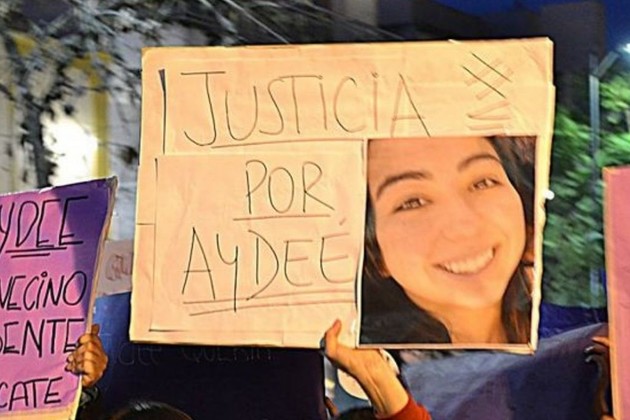 JUSTICIA
POR
AYDEÉ
YDEE
VECINO
DENTE
CATE